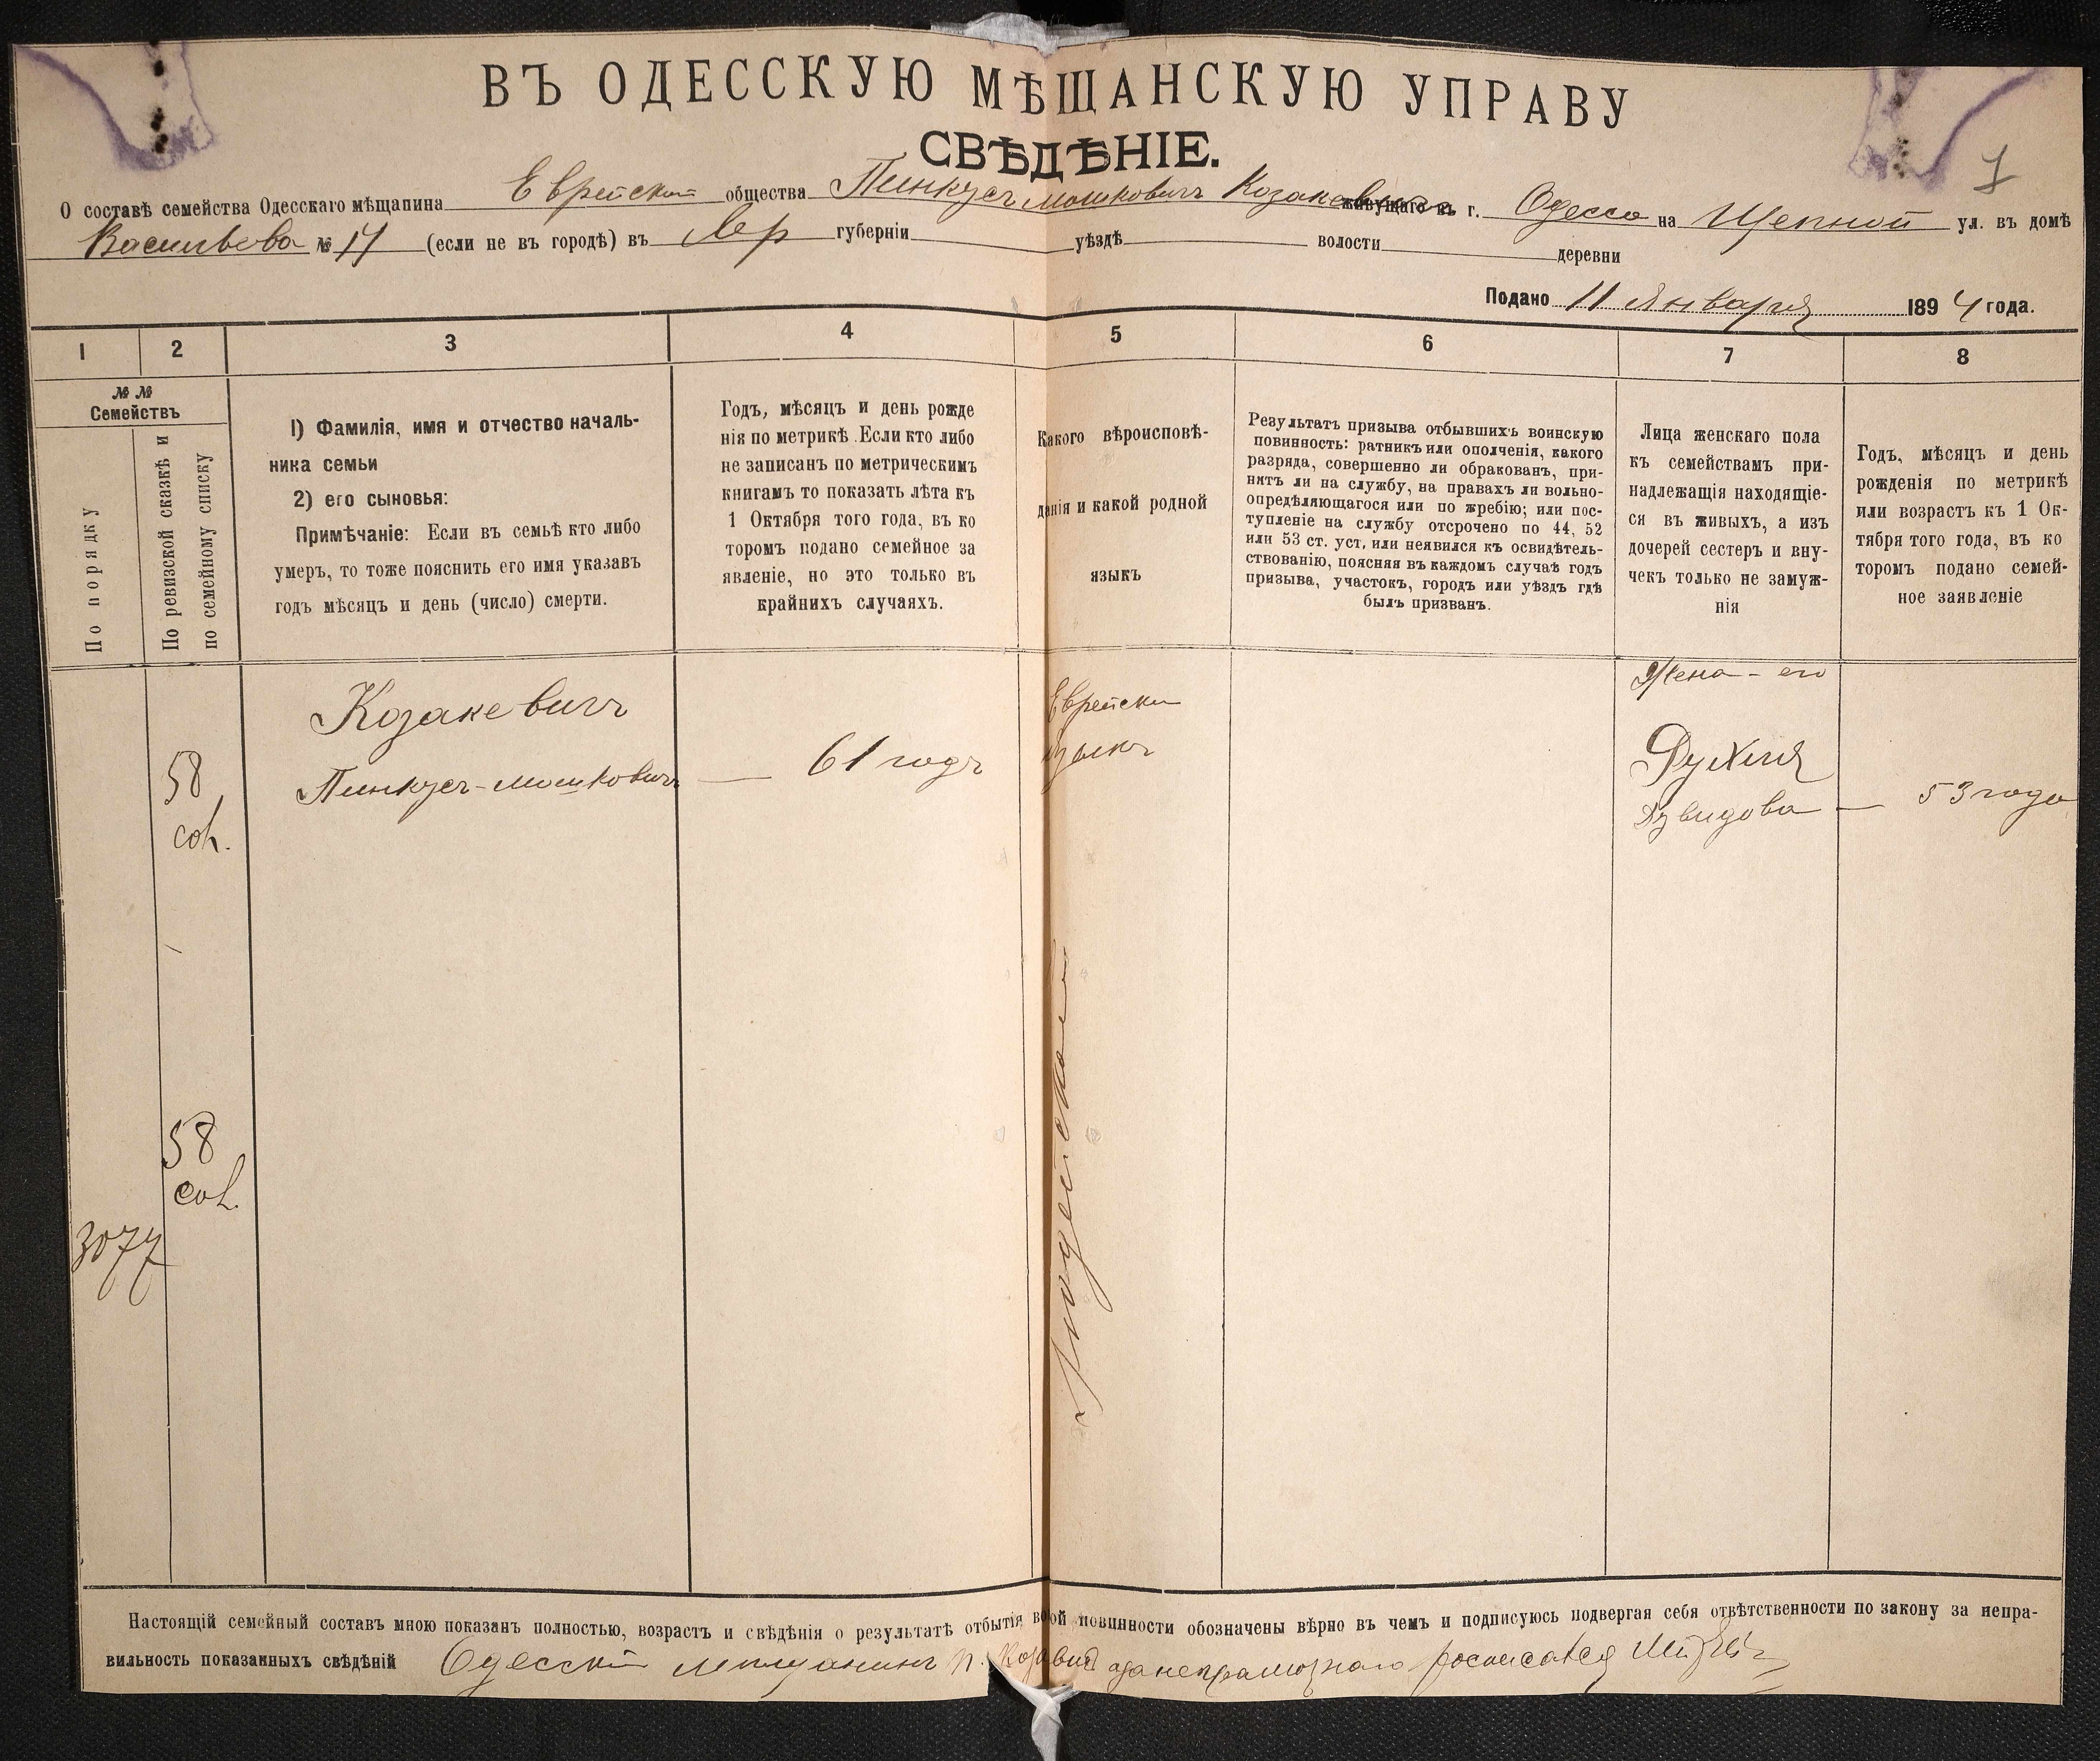 ВЪ ОДЕССКУЮ МѢЩАНСКУЮ УПРАВУ
СВѢДѢНІЕ.
1
О составѣ семейства Одесскаго мѣщанина Еврейскаго общества Пинкусъ Мошковичъ Козакевича живущаго въ г. Одесса на Щепной ул. въ домѣ
Васильева № 17 (если не въ городѣ) въ Хер губерніи уѣздѣ волости деревни
Подано 11 Января 1894 года.
1 2 3 4 5 6 7 8
№ № Семействъ
По порядку
По ревизской сказкѣ и
по семейному списку
1) Фамилія, имя и отчество началь-
ника семьи
2) его сыновья:
Примѣчаніе: Если въ семьѣ кто либо
умеръ, то тоже пояснить его имя указавъ
годъ мѣсяцъ и день (число) смерти.
Годъ, мѣсяцъ и день рожде
нія по метрикѣ. Если кто либо
не записанъ по метрическимъ
книгамъ то показать лѣта къ
1 Октября того года, въ ко
торомъ подано семейное за
явленіе, но это только въ
крайнихъ случаяхъ.
Какого вѣроисповѣ-
данія и какой родной
языкъ
Результатъ призыва отбывшихъ воинскую
повинность: ратникъ или ополченія, какого
разряда, совершенно ли обракованъ, при-
нятъ ли на службу, на правахъ ли вольно-
опредѣляющагося или по жребію; или пос-
тупленіе на службу отсрочено по 44, 52
или 53 ст. уст, или неявился къ освидѣтель-
ствованію, поясняя въ каждомъ случаѣ годъ
призыва, участокъ, городъ или уѣздъ гдѣ
былъ призванъ.
Лица женскаго пола
къ семействамъ при-
надлежащія находящіе-
ся въ живыхъ, а изъ
дочерей сестеръ и вну-
чекъ только не замуж-
нія
Годъ, мѣсяцъ и день
рожденія по метрикѣ
или возрастъ къ 1 Ок-
тября того года, въ ко
торомъ подано семей-
ное заявленіе
58
Козакевичъ
Пинкусъ-Мошковичъ — 61 годъ
Еврейски
языкъ
Жена - его
Рухля
Давидова — 53 года
58
3077
Іюдейскаго
Настоящій семейный составъ мною показанъ полностью, возрастъ и свѣдѣнія о результатѣ отбытія во ой повинности обозначены вѣрно въ чемъ и подписуюсь подвергая себя отвѣтственности по закону за непра-
вильность показанныхъ свѣдѣній Одесскій мѣщанинъ П. а за неграмотнаго росписался